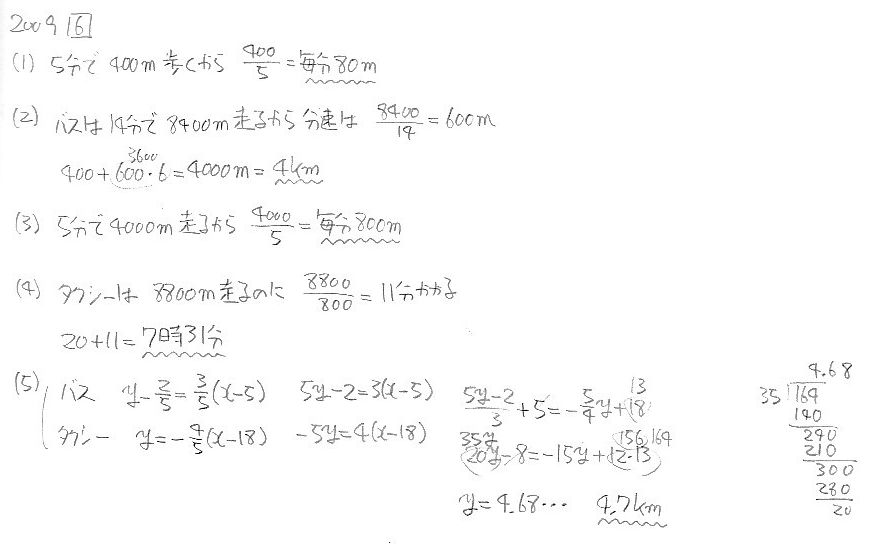 2009 6
(1) 5分で400m歩くから 400/5 = 毎分80m
(2) バスは14分で8400m走るから分速は 8400/14 = 600m
3600
400+600・6=4000m=4km
(3) 5分で4000m走るから 4000/5 = 毎分800m
(4) タクシーは8800m走るのに 8800/800 = 11分かかる
20+11=7時31分
(5) バス y-2/5=3/5(x-5) 5y-2=3(x-5)
タクシー y=-4/5(x-18) -5y=4(x-18)
13
(5y-2)/3+5=-5/4y+18
35y 156,164
20y-8=-15y+12・13
y=4.68… 4.7km
4.68
35 164
140
240
210
300
280
20